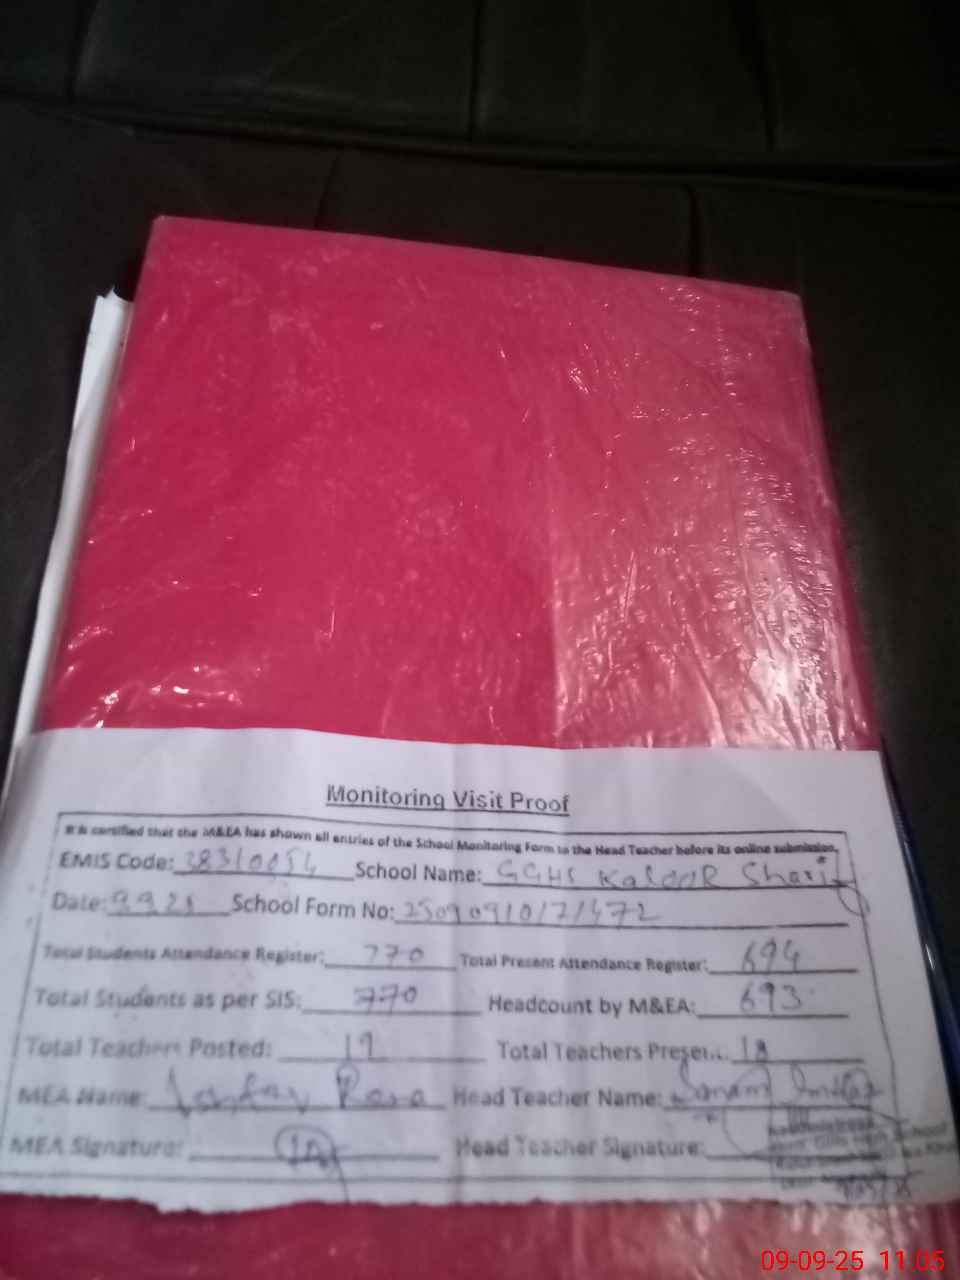 Monitoring Visit Proof
It is certified that the M&EA has shown all entries of the School Monitoring Form to the Head Teacher before its online submission.
EMIS Code: 38310054 School Name: GGHS Kaloor Sharif
Date: 9.9.25 School Form No:
Total Students Attendance Register: 770 Total Present Attendance Register: 694
Total Students as per SIS: 770 Headcount by M&EA: 693
Total Teachers Posted: 19 Total Teachers Present: 18
MEA Name: Head Teacher Name: Sanam
MEA Signature: Head Teacher Signature:
09-09-25 11:05